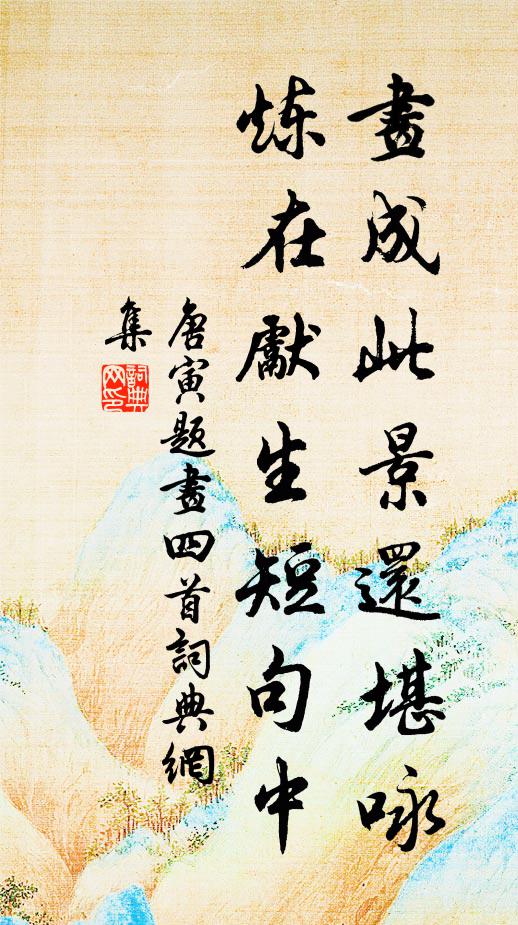 畫成此景還堪咏
炼在獻生短句中
唐寅題畫四首詞典網
集
詞典
网印